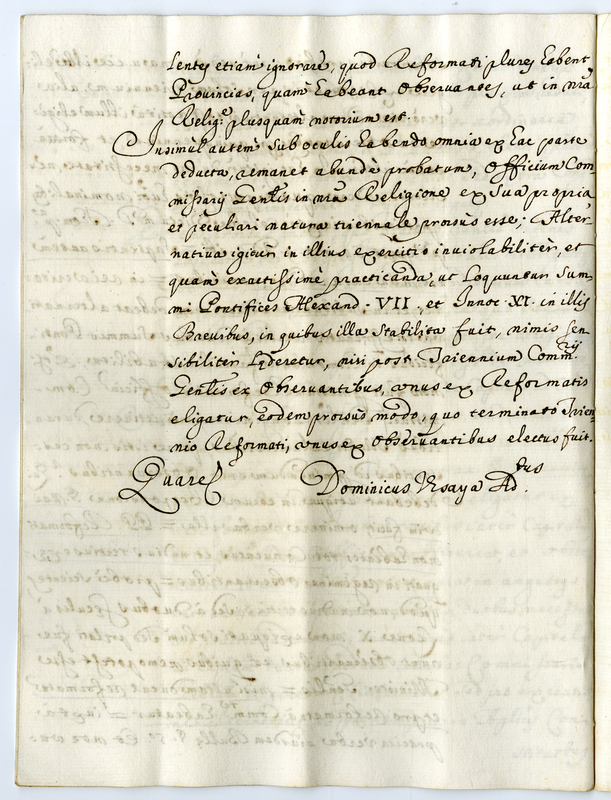 lentes etiam ignorare, quod Reformati plures habent
Provincias, quam habeant Observantes, ut in nrâ
Relig.e plusquam notorium est.
Insimul autem sub oculis habendo omnia ex hac parte
deducta, remanet abundè probatum, Officium Com-
missarij Gentis in nrâ Religione ex sua propria,
et peculiari natura triennale prorsùs esse; Alter-
nativa igitur in illius exercitio inviolabilitèr, et
quàm exactissimè practicanda, ut loquuntur Sum-
mi Pontifices Alexand. VII. et Innoc. XI. in illis
Brevibus, in quibus illa stabilita fuit, nimis sen-
sibilitèr lęderetur, nisi post Triennium Comm.rij
Gentis ex Observantibus, unus ex Reformatis
eligatur, eodem prorsùs modo, quo terminato Trien-
nio Reformati, unus ex Observantibus electus fuit.
Quare
Dominicus Ursaya Ad.tus